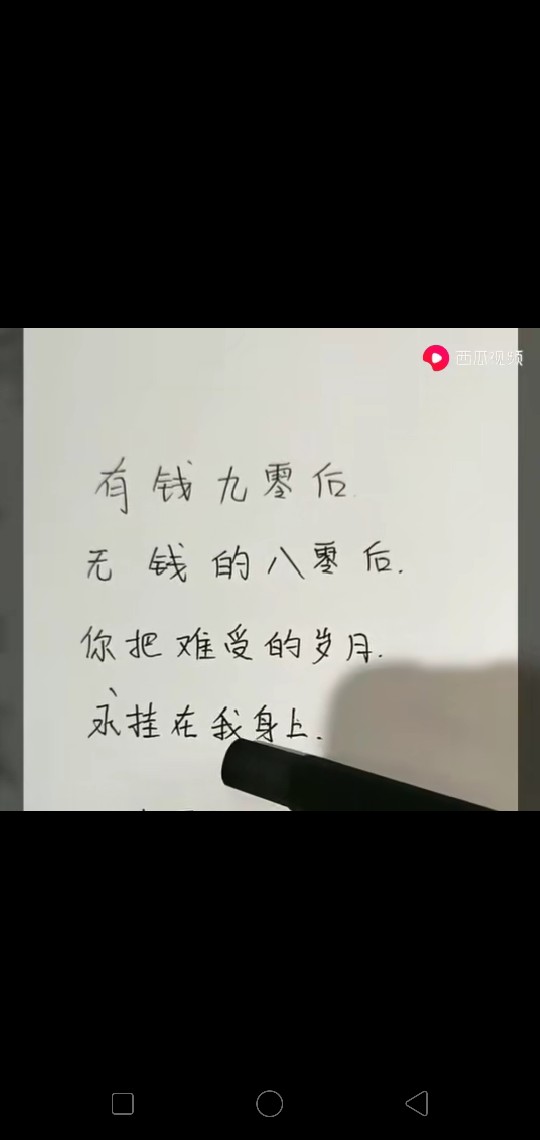 西瓜视频
有钱九零后
无钱的八零后.
你把难受的岁月.
永挂在我身上.